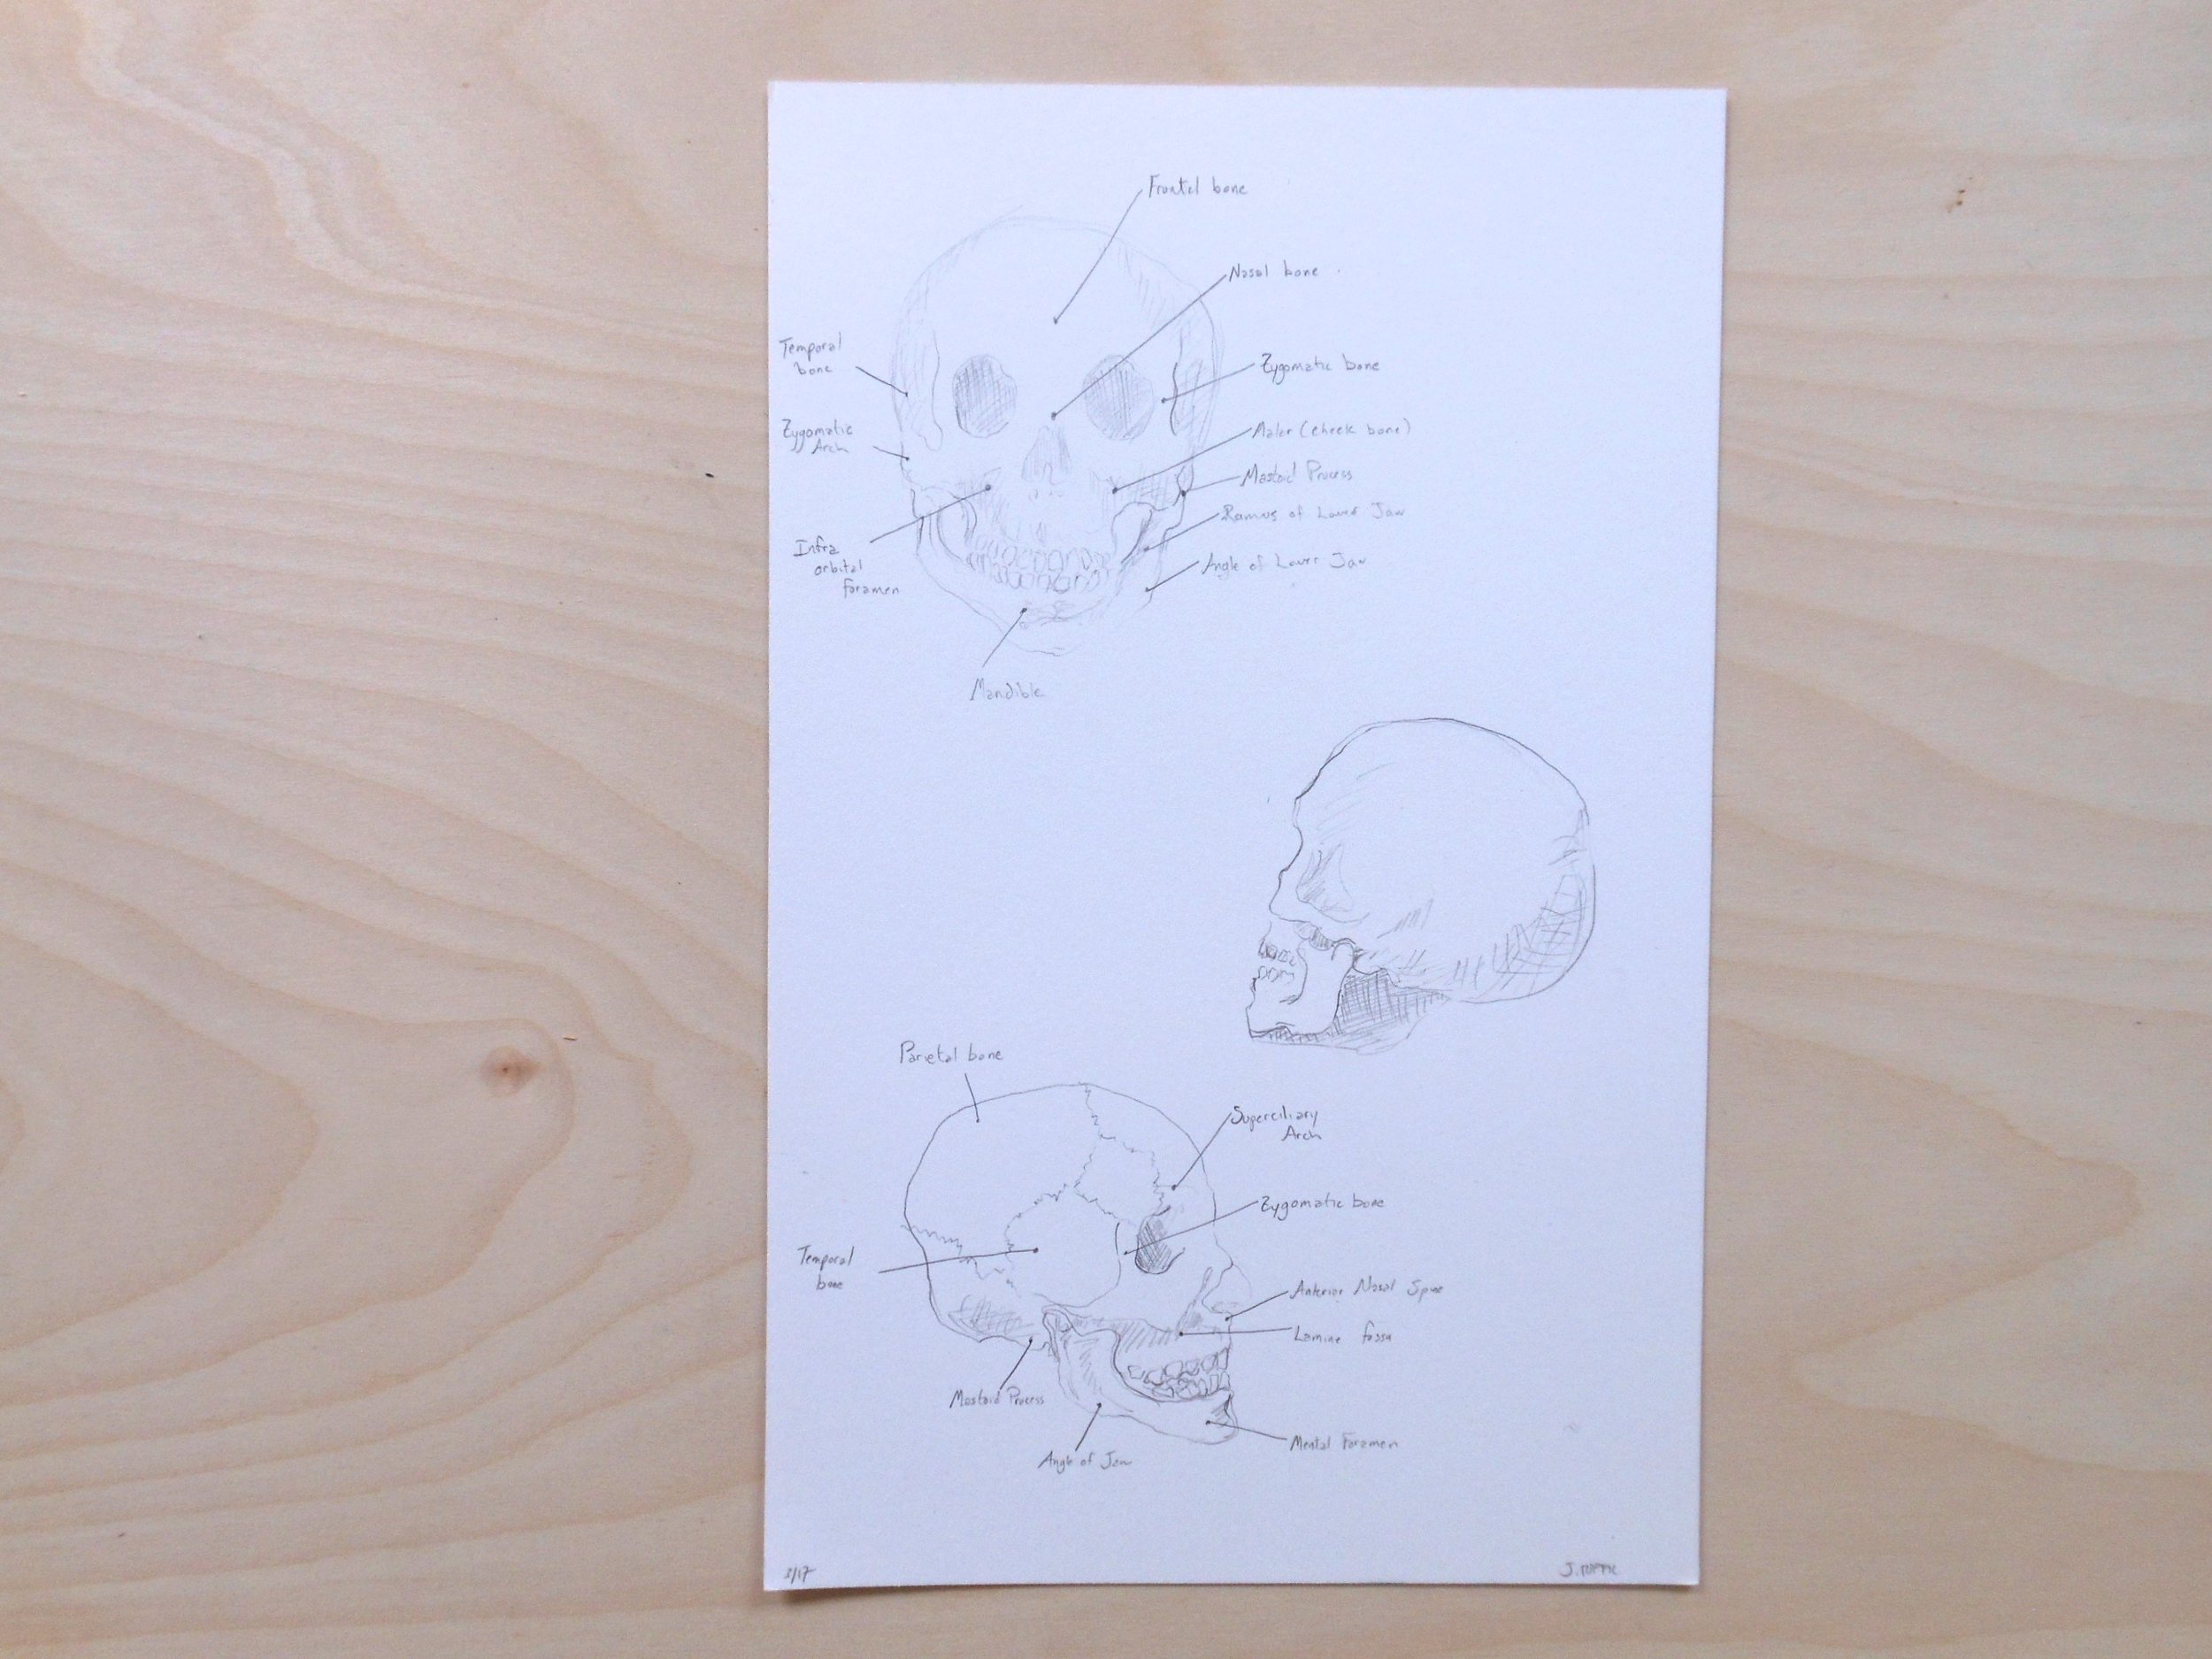 Frontal bone
Nasal bone
Temporal
bone
Zygomatic bone
Zygomatic
Arch
Maler (cheek bone)
Mastoid Process
Ramus of Lower Jaw
Infra
orbital
foramen
Angle of Lower Jaw
Mandible
Parietal bone
Superciliary
Arch
Zygomatic bone
Temporal
bone
Anterior Nasal Spine
Lamine fossa
Mastoid Process
Angle of Jaw
Mental Foramen
3/17
J.